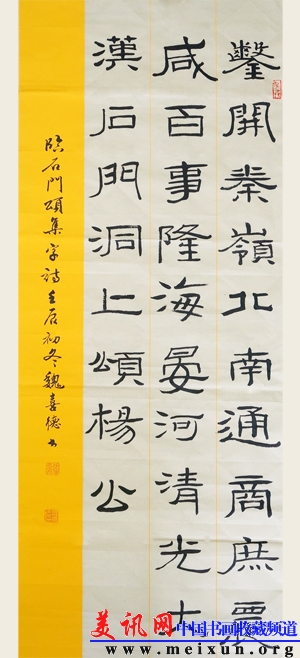 鑿開秦嶺北南通商庶眾
咸百事隆海晏河清光大
漢石門洞上頌楊公
臨石門頌集字詩壬辰初冬魏喜德书
美讯网 中国书画收藏频道
www.meixun.org